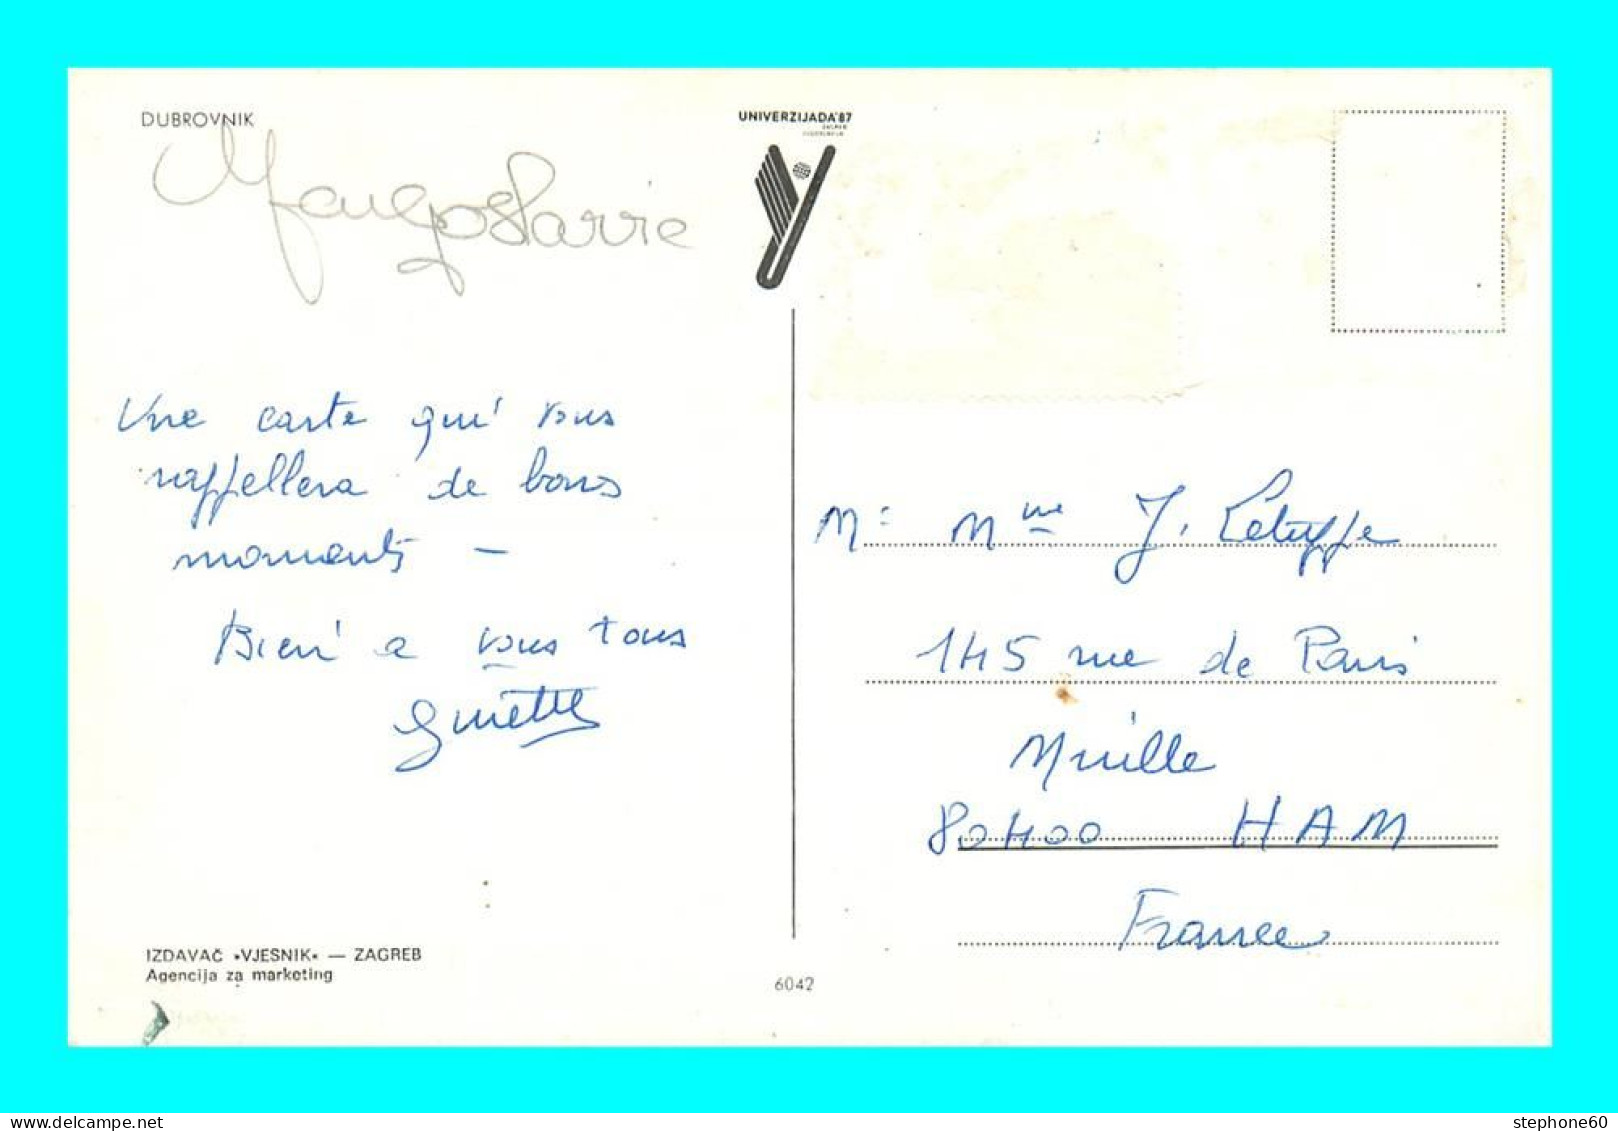 DUBROVNIK
UNIVERZIJADA'87
ZAGREB
JUGOSLAVIJA
Une carte qui vous
rappellera de bons
moments —
Bien à vous tous
Ginette
IZDAVAČ »VJESNIK« — ZAGREB
Agencija za marketing
6042
M: Mme J.
145 rue de Paris
Muille
80400 HAM
France
stephone60